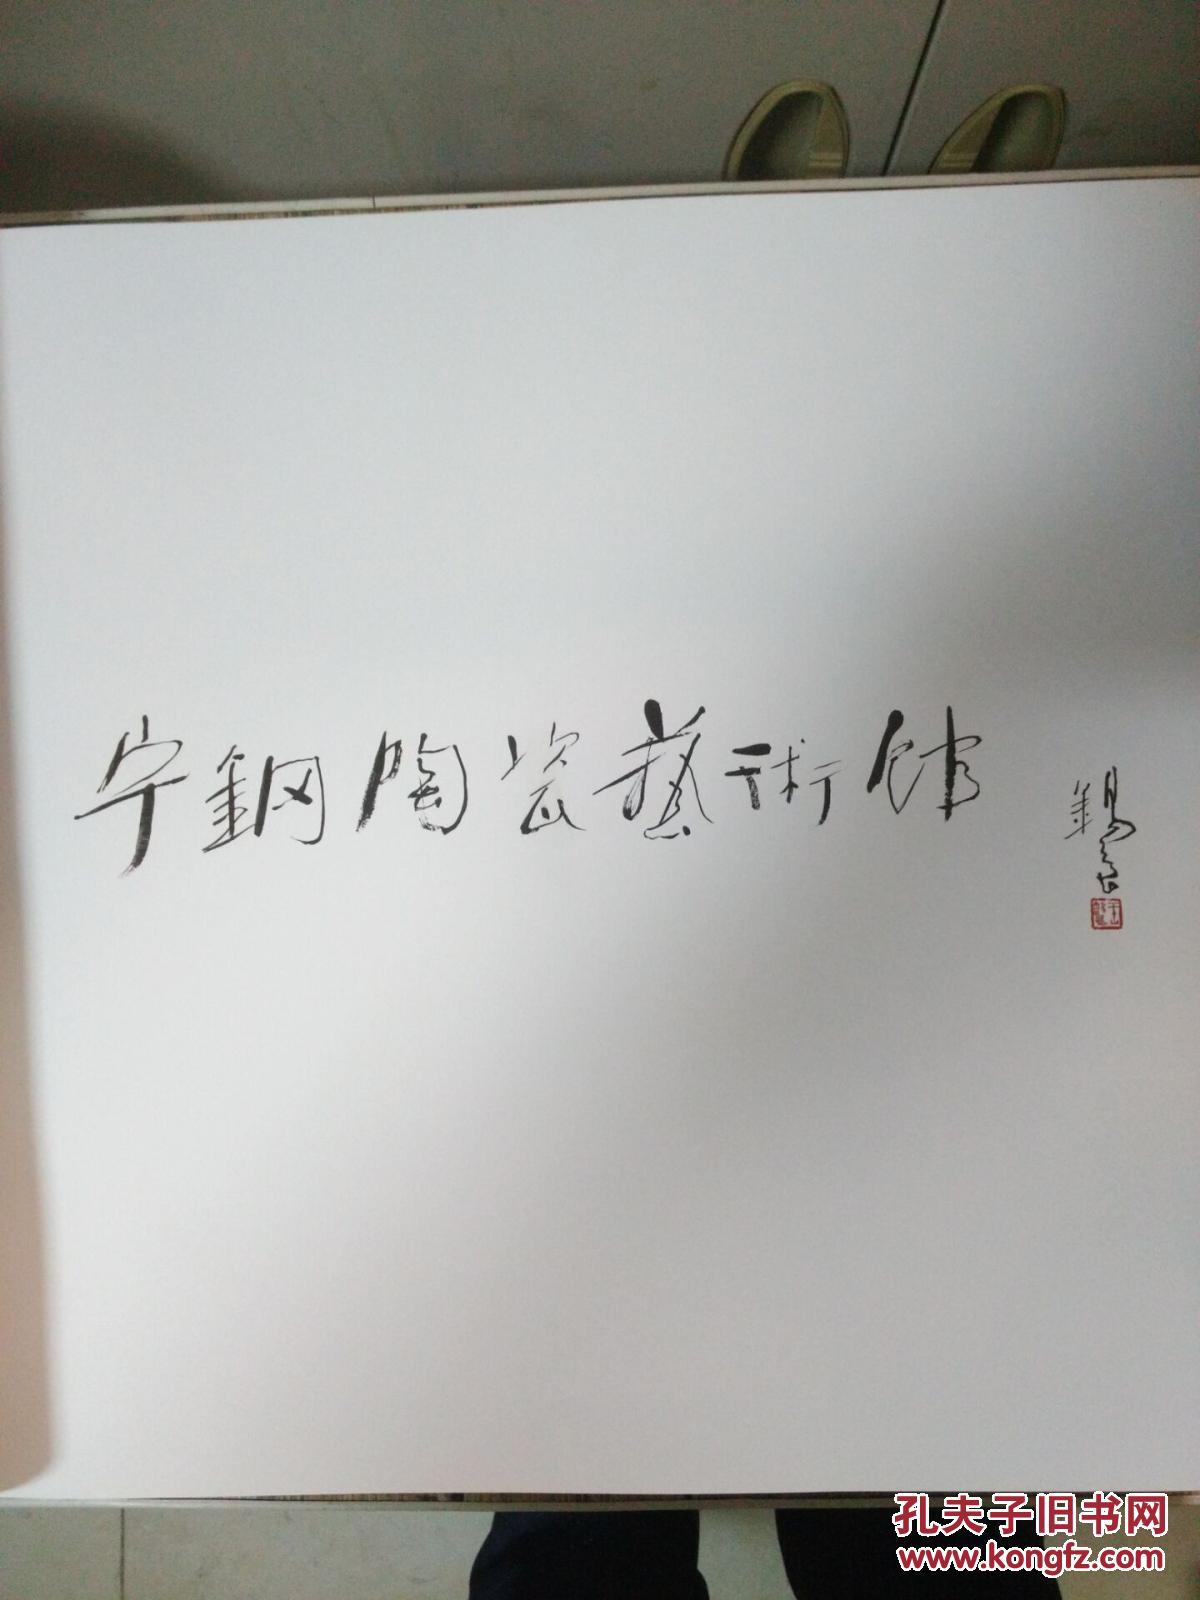 宁鋼陶瓷藝術館
錫良
孔夫子旧书网
www.kongfz.com